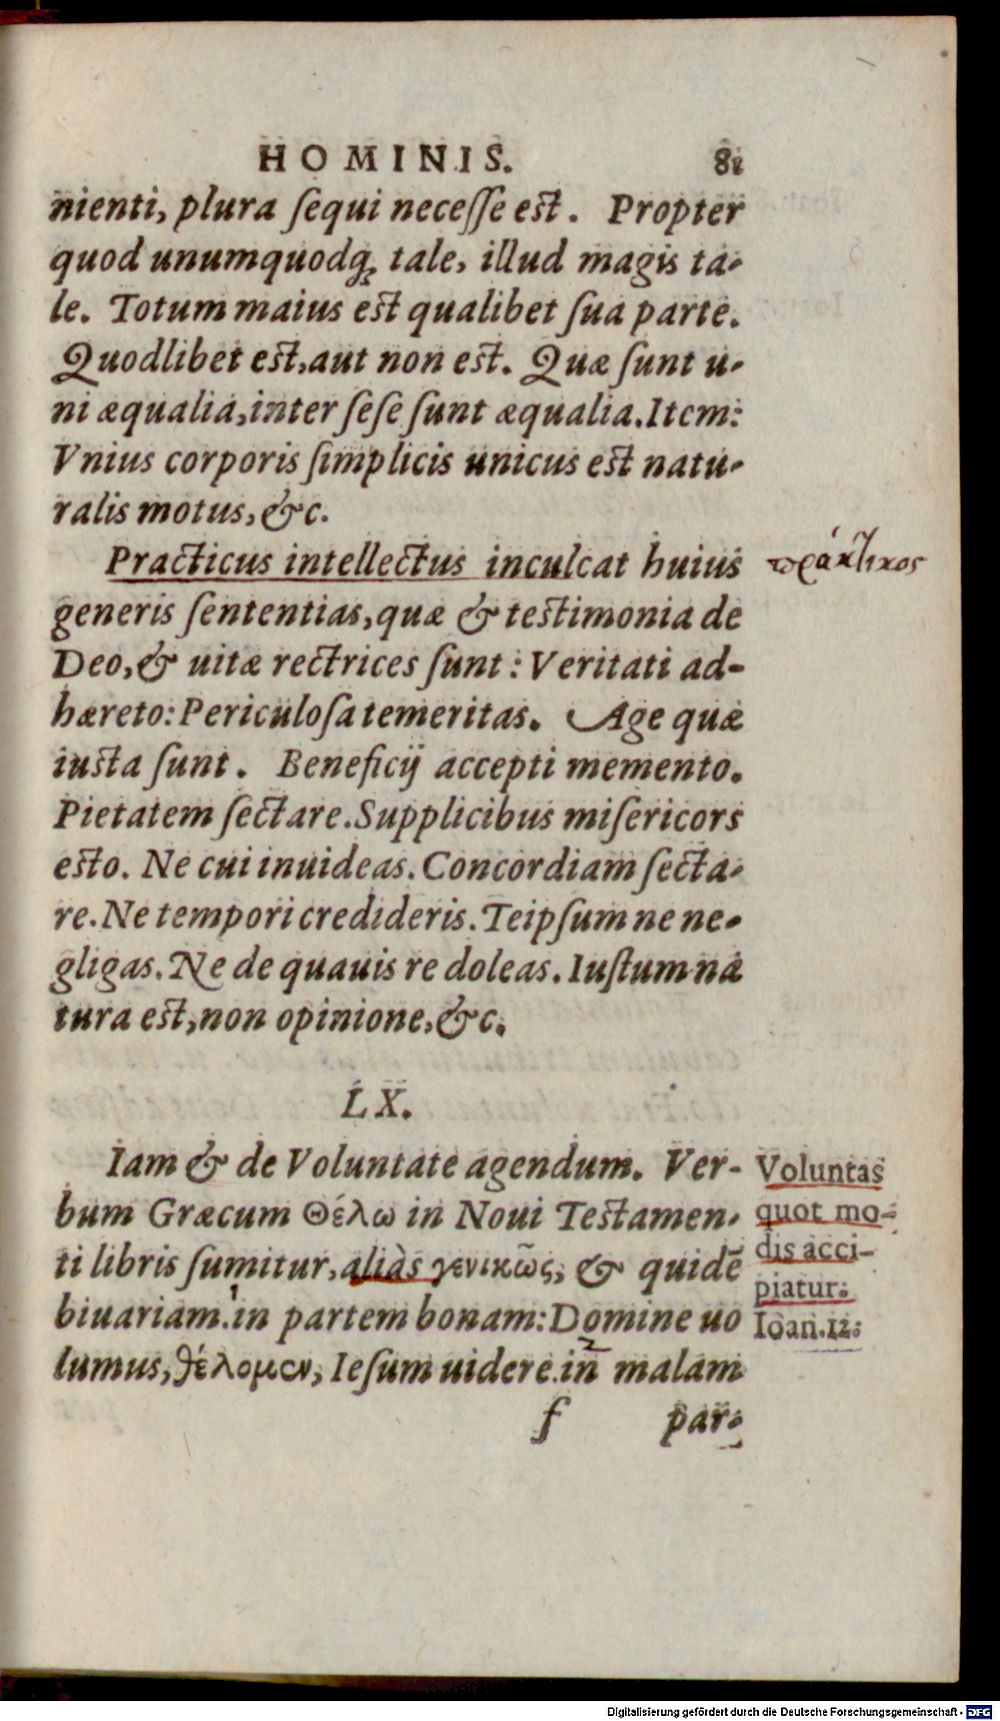 HOMINIS. 81
nienti, plura ſequi neceſſe est. Propter
quod unumquodq; tale, illud magis ta-
le. Totum maius est qualibet ſua parte.
Quodlibet est, aut non est. Quæ ſunt u-
ni æqualia, inter ſeſe ſunt æqualia. Item:
Vnius corporis ſimplicis unicus est natu-
ralis motus, &c.
Practicus intellectus inculcat huius
πρακτικος
generis ſententias, quæ & testimonia de
Deo, & uitæ rectrices ſunt: Veritati ad-
hæreto: Periculoſa temeritas. Age quæ
iusta ſunt. Beneficij accepti memento.
Pietatem ſectare. Supplicibus miſericors
esto. Ne cui inuideas. Concordiam ſecta-
re. Ne tempori credideris. Teipſum ne ne-
gligas. Ne de quauis re doleas. Iuſtum na
tura est, non opinione, &c.
LX.
Iam & de Voluntate agendum. Ver-
bum Græcum Θέλω in Noui Testamen-
ti libris ſumitur, aliàs γενικῶς, & quidē
biuariam. 1 in partem bonam: Domine uo
lumus, θέλομεν, Ieſum uidere. 2 in malam
Voluntas
quot mo-
dis acci-
piatur.
Ioan. 12.
f par-
Digitalisierung gefördert durch die Deutsche Forschungsgemeinschaft - DFG